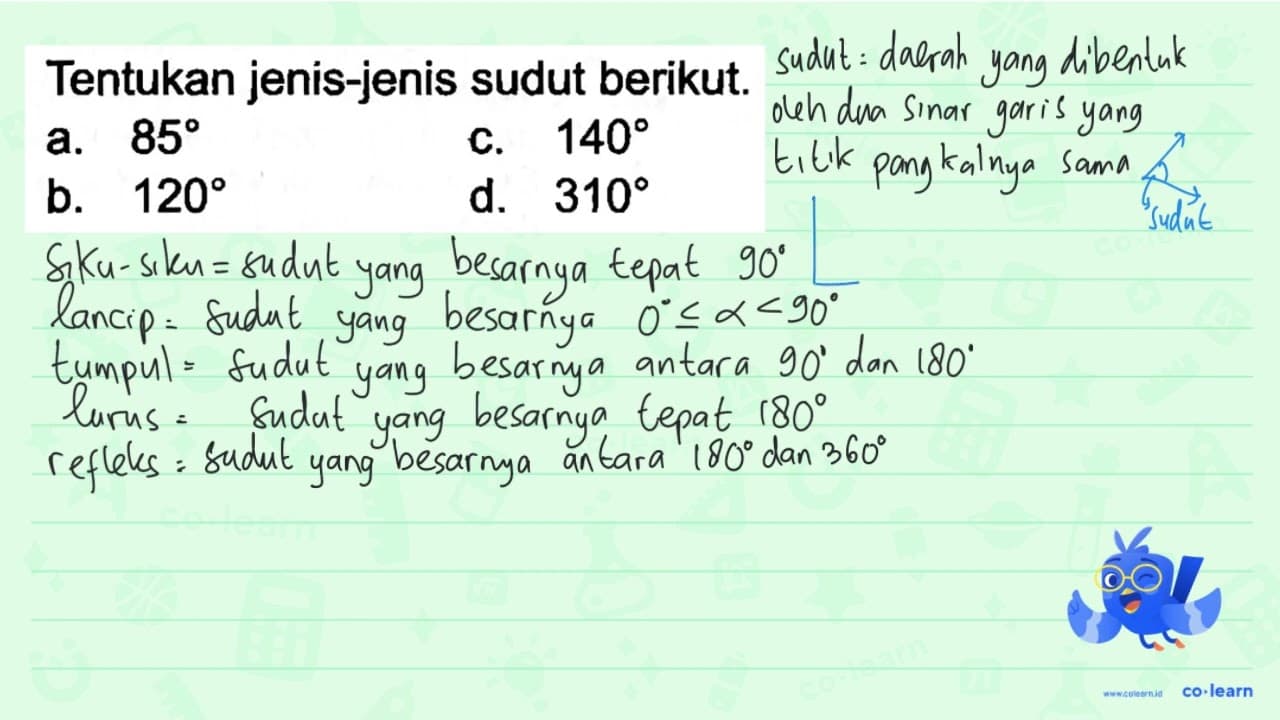 Tentukan jenis-jenis sudut berikut.
a. 85°
c. 140°
b. 120°
d. 310°
sudut = daerah yang dibentuk
oleh dua sinar garis yang
titik pangkalnya sama
sudut
siku-siku = sudut yang besarnya tepat 90°
lancip = sudut yang besarnya 0° ≤ α < 90°
tumpul = sudut yang besarnya antara 90° dan 180°
lurus = sudut yang besarnya tepat 180°
refleks = sudut yang besarnya antara 180° dan 360°
www.colearn.id
co·learn